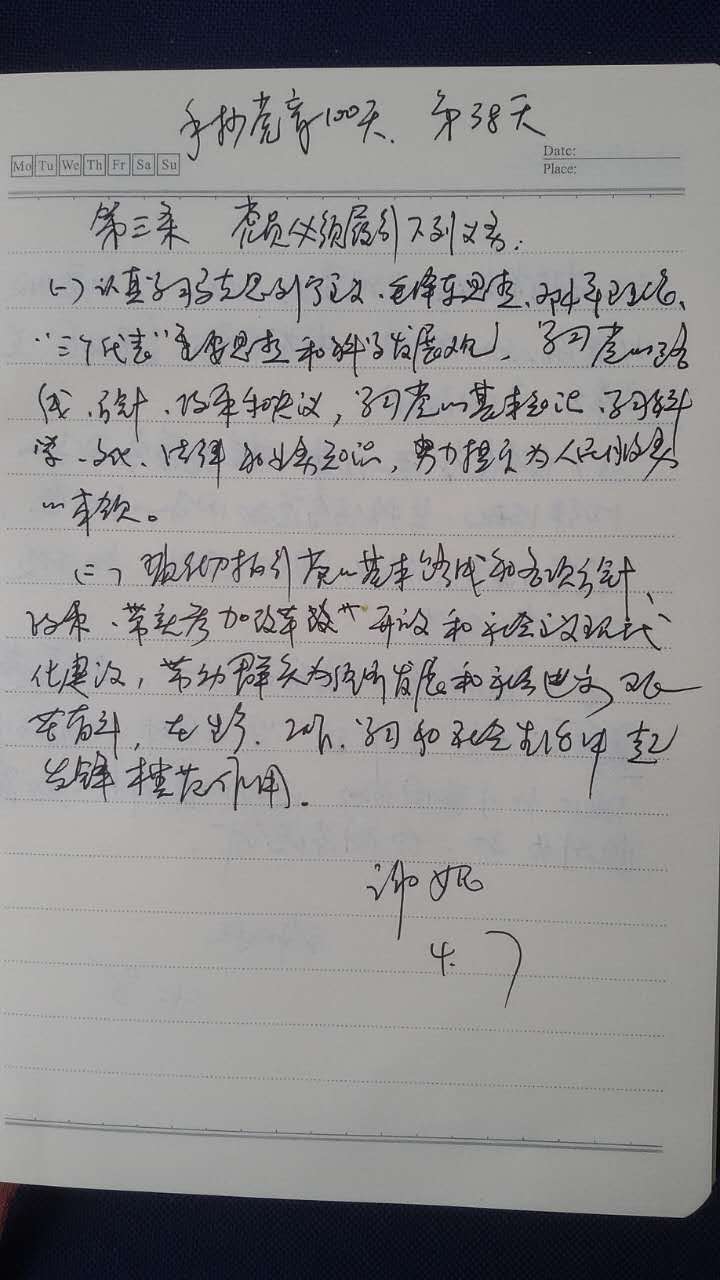 手抄党章100天、第38天
Mo Tu We Th Fr Sa Su
Date:
Place:
第三条 党员必须履行下列义务:
(一)认真学习马克思列宁主义、毛泽东思想、邓小平理论、
“三个代表”重要思想和科学发展观,学习党的路
线、方针、政策和决议,学习党的基本知识,学习科
学、文化、法律和业务知识,努力提高为人民服务
的本领。
(二)贯彻执行党的基本路线和各项方针、
政策、带头参加改革开放和社会主义现代
化建设,带动群众为经济发展和社会进步艰
苦奋斗,在生产、工作、学习和社会生活中起
先锋模范作用。
谢妮
4.7